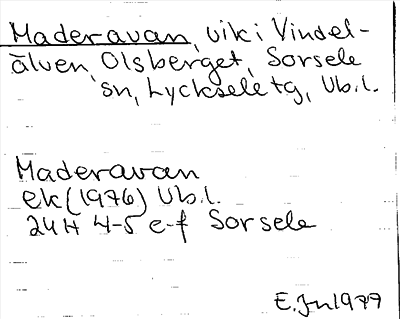 Maderavan, vik i Vindel-
älven, Olsberget, Sorsele
sn, Lycksele tg, Vb.l.
Maderavan
ek (1976) Vb.l.
24H 4-5 e-f Sorsele
E.Jn 1979